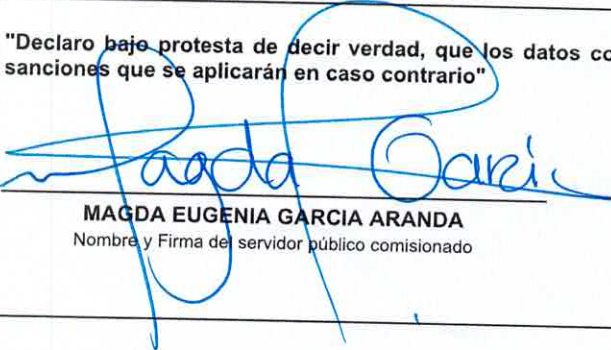 "Declaro bajo protesta de decir verdad, que los datos co
sanciones que se aplicarán en caso contrario"
Magda Garci
MAGDA EUGENIA GARCIA ARANDA
Nombre y Firma del servidor público comisionado